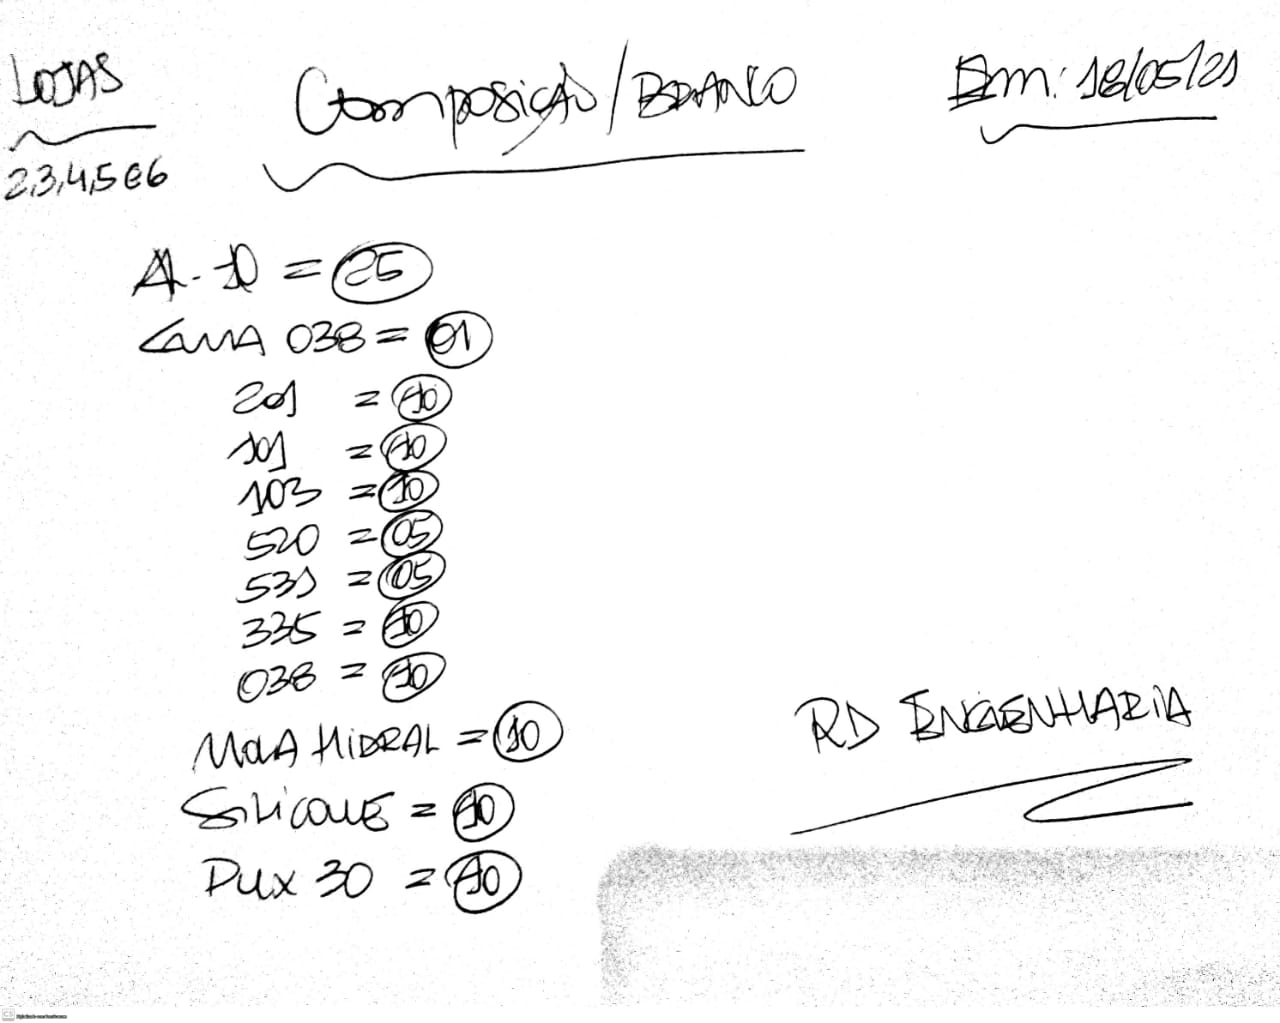 LOJAS
Composição/BRANCO
Em: 18/05/21
2,3,4,5 e 6
AL-10 = 25
038 = 01
201 = 10
101 = 10
103 = 10
520 = 05
531 = 05
335 = 10
038 = 10
MOLA HIDRAL = 10
SILICONE = 10
PUX 30 = 10
RD ENGENHARIA
CS